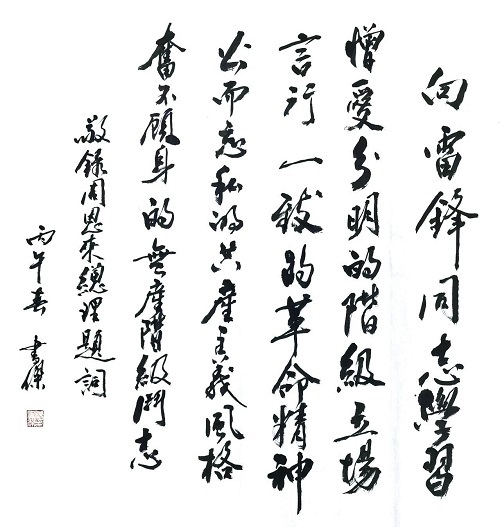 向雷鋒同志學習
憎愛分明的階級立場
言行一致的革命精神
公而忘私的共產主義風格
奮不顧身的無產階級鬥志
敬錄周恩來總理題詞
丙午春 書傑